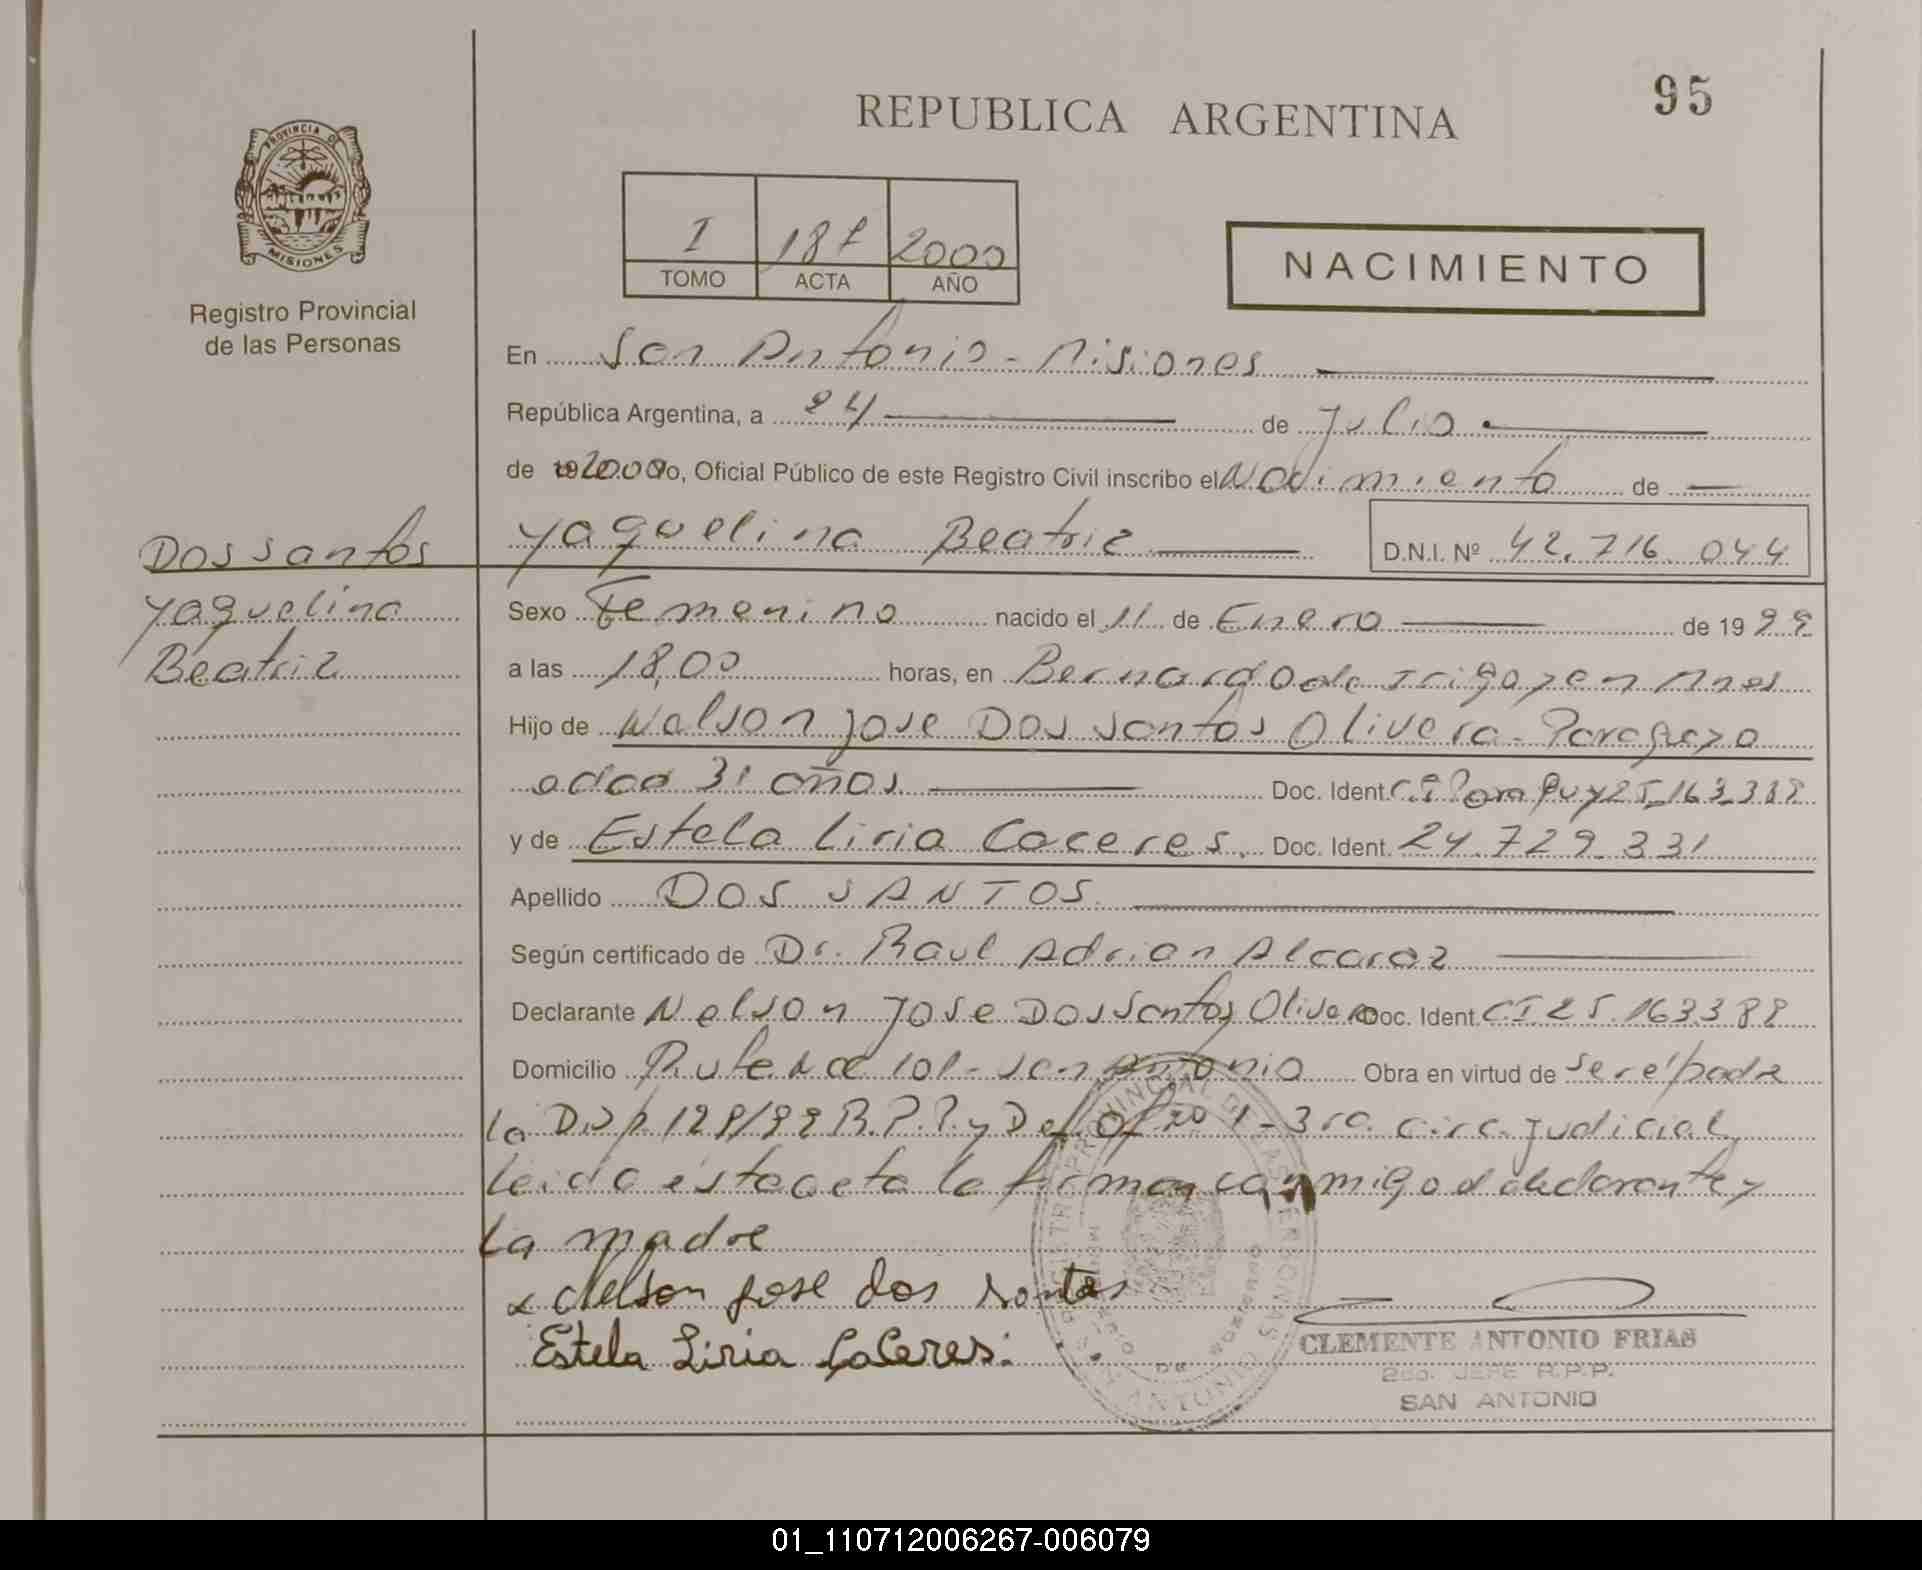 95
REPUBLICA ARGENTINA
PROVINCIA DE
MISIONES
Registro Provincial
de las Personas
I 187 2000
TOMO ACTA AÑO
NACIMIENTO
En San Antonio - Misiones
República Argentina, a 24 de Julio
de 2000 yo, Oficial Público de este Registro Civil inscribo el Nacimiento de
Dos santos
Yaquelina
Beatriz
Yaquelina Beatriz D.N.I. Nº 42.716.044
Sexo Femenino nacido el 11 de Enero de 1999
a las 18,00 horas, en Bernardo de Irigoyen Mnes
Hijo de Nelson Jose Dos santos Olivera - Paraguayo
edad 31 años Doc. Ident. C.I.
y de Estela Liria Caceres. Doc. Ident. 24.729.331
Apellido DOS SANTOS
Según certificado de Dr. Raul Adrian Alcaraz
Declarante Nelson Jose Dos Santos Olivera Doc. Ident. CI
Domicilio Ruta 101 - San Antonio Obra en virtud de ser el padre
la 3ra. circ. judicial,
leida esta acta la firman conmigo el declarante y
la madre
Nelson jose dos santos
Estela Liria Caceres.
CLEMENTE ANTONIO FRIAS
2do. JEFE R.P.P.
SAN ANTONIO
01_110712006267-006079